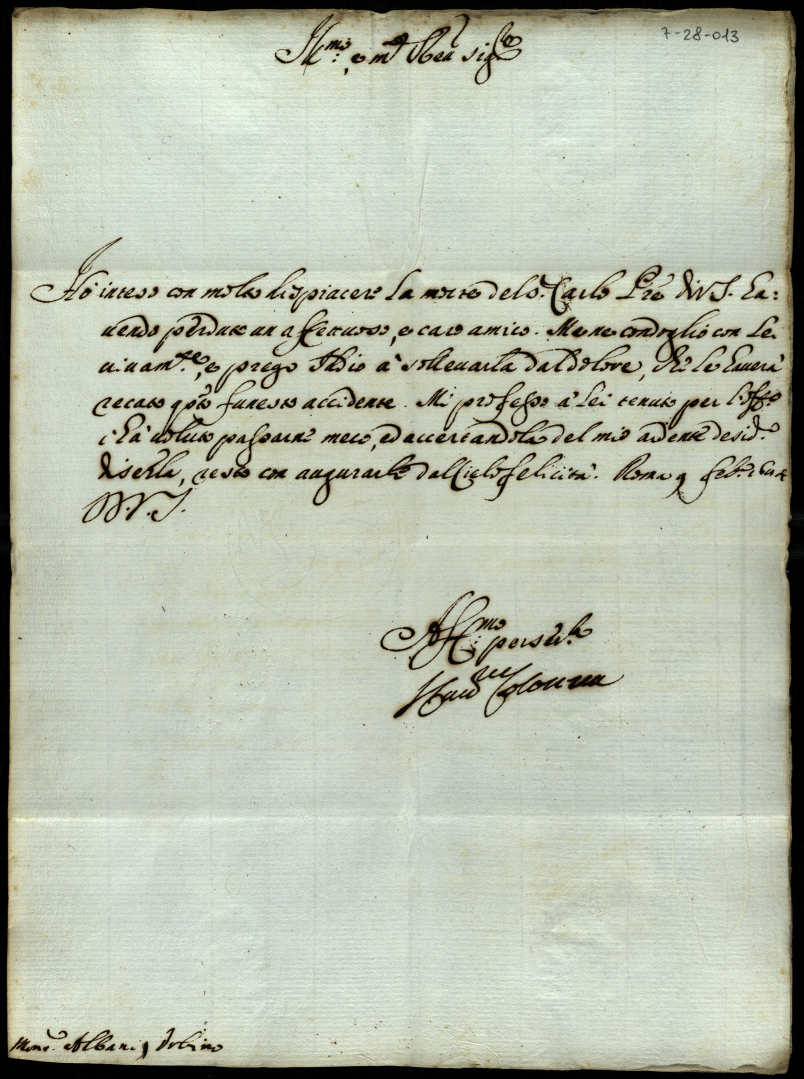 7-28-013
Ill.mo e m.to Reu sig.re
Hò inteso con molto dispiacere la morte del s.r Carlo Pre di V.S. ha=
uendo perduto un affettuoso, e caro amico. Me ne condoglio con lei
uiuam.te, e prego Iddio à solleuarla dal dolore, che le hauerà
recato q.sto funesto accidente. Mi professo à lei tenuto per l'Off.o
c'hà uoluto passarne meco, ed accertandola del mio ardente desid.o
di seruirla, resto con augurarle dal Cielo felicità. Roma 9 feb.o
D.V.S.
Aff.mo per ser.la
Colonna
Mons.r Albani, Urbino